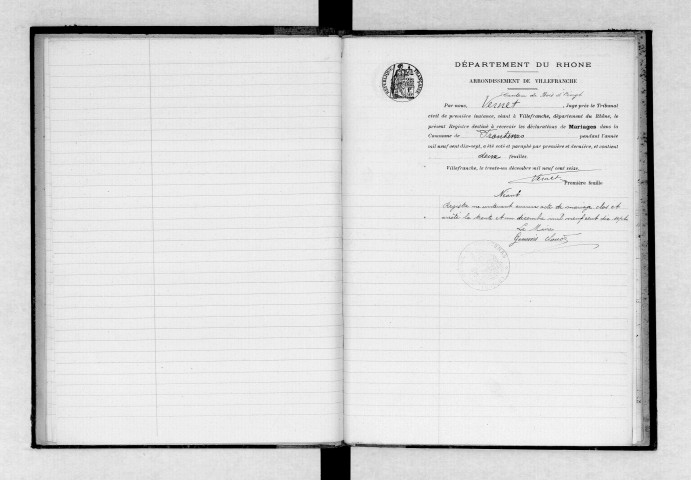 DÉPARTEMENT DU RHONE
ARRONDISSEMENT DE VILLEFRANCHE
Canton du Bois d'Oingt
Par nous, Vernet, Juge près le Tribunal
civil de première instance, séant à Villefranche, département du Rhône, le
présent Registre destiné à recevoir les déclarations de Mariages dans la
Commune de Frontenas pendant l'année
mil neuf cent dix-sept, a été coté et paraphé par première et dernière, et contient
deux feuilles.
Villefranche, le trente-un décembre mil neuf cent seize.
Vernet Première feuille
Néant
Registre ne contenant aucun acte de mariage clos et
arrêté le trente et un décembre mil neuf cent dix sept
Le Maire